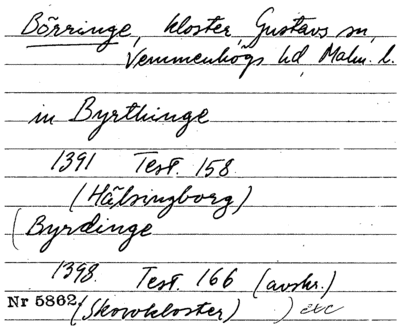 Börringe, kloster, Gustavs sn,
Vemmenhögs hd, Malm. l.
in Byrthinge
1391 Test. 158
(Hälsingborg)
(Byrdinge
1398. Test. 166 (avskr.)
Nr 5862. (Skowkloster) ) etc